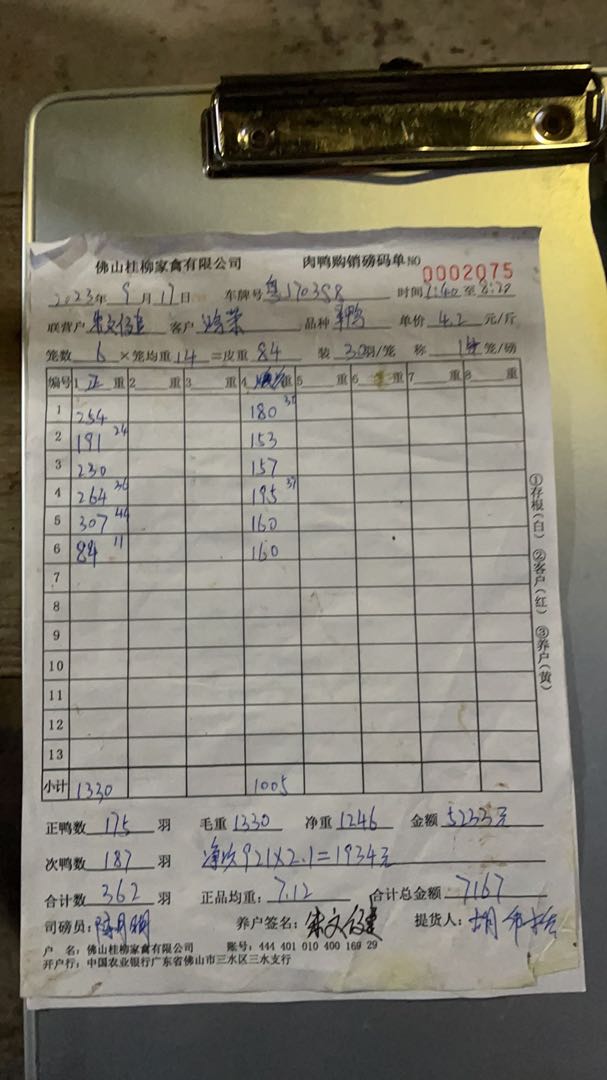 佛山桂柳家禽有限公司 肉鸭购销磅码单 NO 0002075
2023年 9月17日 车牌号 粤170398 时间 至
联营户 朱文 客户 鸿荣 品种 单价 4.2 元/斤
笼数 6 ×笼均重 14 =皮重 84 装 30羽/笼 称 笼/磅
编号 1 正 重 2 重 3 重 4 重 5 重 6 重 7 重 8 重
1 254 180
2 191 24 153
3 230 157
4 264 36 195 37
5 307 44 160
6 84 11 160
7
8
9
10
11
12
13
小计 1330 1005
正鸭数 175 羽 毛重 1330 净重 1246 金额 5233元
次鸭数 187 羽 净次921×2.1=1934元
合计数 362 羽 正品均重: 7.12 合计总金额 7167
司磅员: 养户签名: 朱文 提货人:
户 名: 佛山桂柳家禽有限公司 账号: 444 401 010 400 169 29
开户行: 中国农业银行广东省佛山市三水区三水支行
①存根(白) ②客户(红) ③养户(黄)